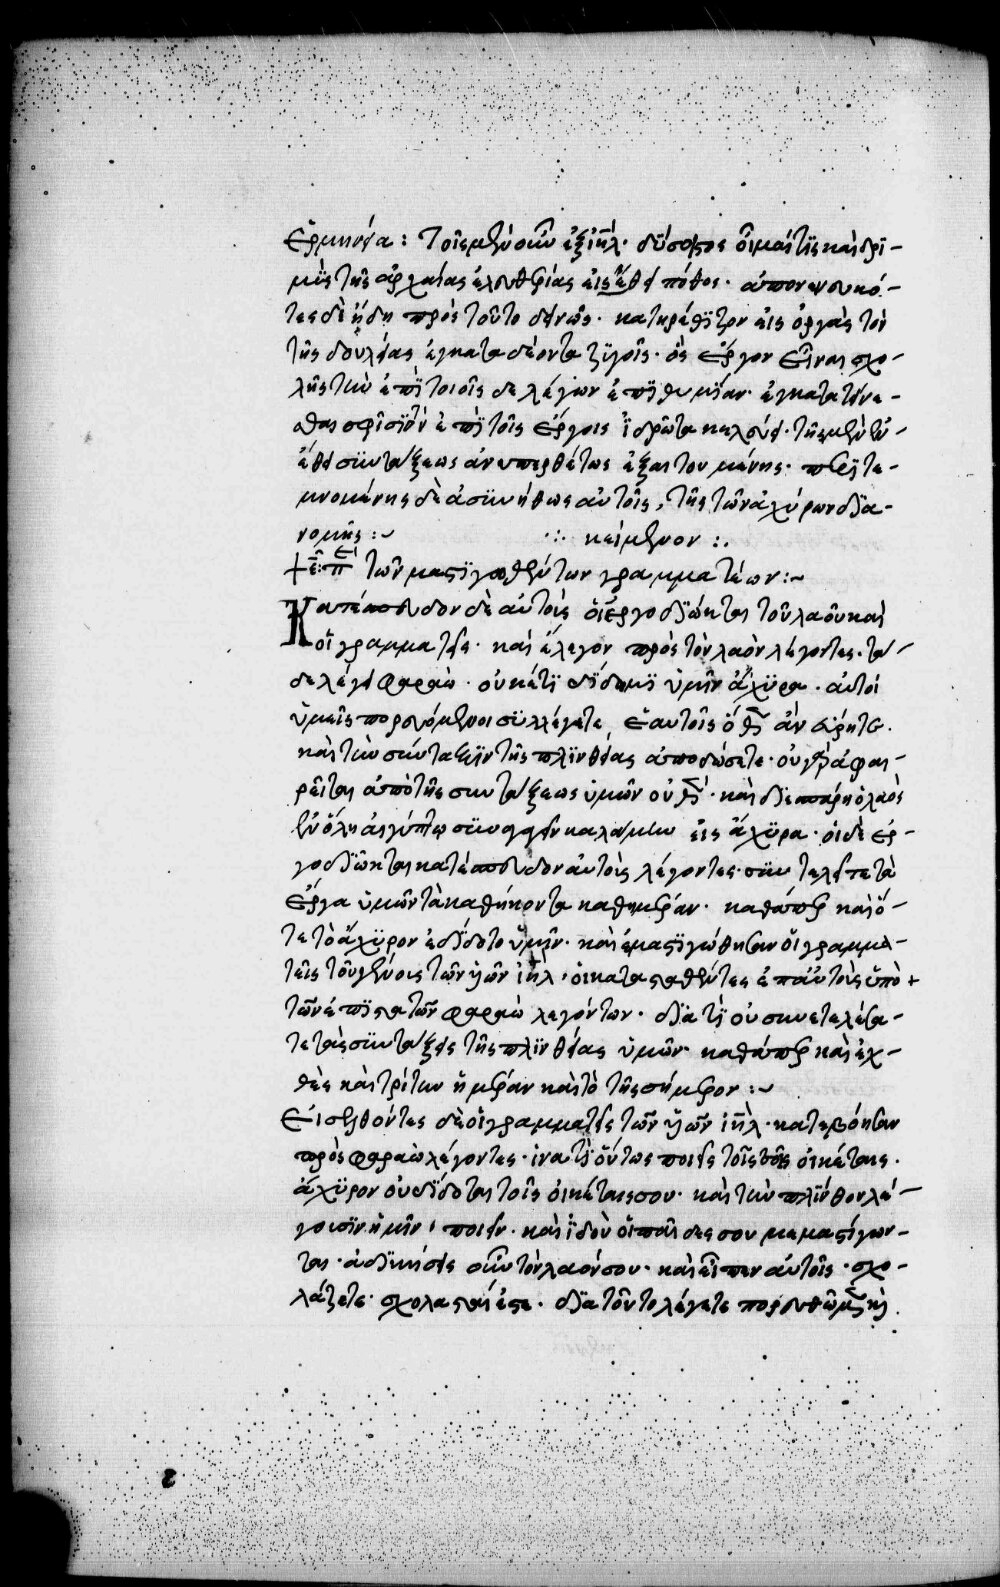 Ἑρμηνεία : Τοῖς μὲν οὖν ἐξ ἰηλ· δύσοιστος οἶμαί τις καὶ δρι-
μὺς τῆς ἀρχαίας ἐλευθερίας εἰσέθει πόθος· ἀπονενευκό-
τες δὲ ἤδη πρὸς τοῦτο δεινῶς· κατηρέθιζον εἰς ὀργὰς τὸν
τῆς δουλείας ἐγκαταδέοντα ζυγοῖς· ὃς ἔργον εἶναι σχο-
λῆς τὴν ἐπὶ τοιοῖσδε λέγων ἐπιθυμίαν· ἐγκατατείνε-
σθαι σφίσιν ἐπὶ τοῖς ἔργοις ἱδρῶτα κελεύει· τῆς μὲν ἐν
ἔθει συντάξεως ἀνυπερθέτως ἐξαιτουμένης· περιτε-
μνομένης δὲ ἀσυνήθως αὐτοῖς, τῆς τῶν ἀχύρων δια-
νομῆς :~ ∴ κείμενον :.
τῶν μαστιγωθέντων γραμματέων :~
Κατέσπευδον δὲ αὐτοὺς οἱ ἐργοδιῶκται τοῦ λαοῦ καὶ
οἱ γραμματεῖς· καὶ ἔλεγον πρὸς τὸν λαὸν λέγοντες· τά-
δε λέγει φαραώ· οὐκέτι δίδωμι ὑμῖν ἄχυρα· αὐτοὶ
ὑμεῖς πορευόμενοι συλλέγετε ἑαυτοῖς ὅθεν ἂν εὕρητε·
καὶ τὴν σύνταξιν τῆς πλινθείας ἀποδώσετε· οὐ γὰρ ἀφαι-
ρεῖται ἀπὸ τῆς συντάξεως ὑμῶν οὐθέν· καὶ διεσπάρη ὁ λαὸς
ἐν ὅλῃ αἰγύπτῳ συναγαγεῖν καλάμην εἰς ἄχυρα· οἱ δὲ ἐρ-
γοδιῶκται κατέσπευδον αὐτοὺς λέγοντες· συντελεῖτε τὰ
ἔργα ὑμῶν τὰ καθήκοντα καθημέραν· καθάπερ καὶ ὅ-
τε τὸ ἄχυρον ἐδίδοτο ὑμῖν· καὶ ἐμαστιγώθησαν οἱ γραμμα-
τεῖς τοῦ γένους τῶν υἱῶν ἰηλ· οἱ κατασταθέντες ἐπ' αὐτοὺς ὑπὸ +
τῶν ἐπιστατῶν φαραὼ λεγόντων· διατί οὐ συνετελέσα-
τε τὰς συντάξεις τῆς πλινθείας ὑμῶν· καθάπερ καὶ ἐχ-
θὲς καὶ τρίτην ἡμέραν καὶ τὸ τῆς σήμερον :~
Εἰσελθόντες δὲ οἱ γραμματεῖς τῶν υἱῶν ἰηλ· κατεβόησαν
πρὸς φαραὼ λέγοντες· ἱνατί οὕτως ποιεῖς τοῖς σοῖς οἰκέταις·
ἄχυρον οὐ δίδοται τοῖς οἰκέταις σου· καὶ τὴν πλίνθον λέ-
γουσιν ἡμῖν, ποιεῖν· καὶ ἰδοὺ οἱ παῖδες σου μεμαστίγων-
ται· ἀδικήσεις οὖν τὸν λαόν σου· καὶ εἶπεν αὐτοῖς· σχο-
λάζετε· σχολασταί ἐστε· διατοῦτο λέγετε πορευθῶμεν καὶ